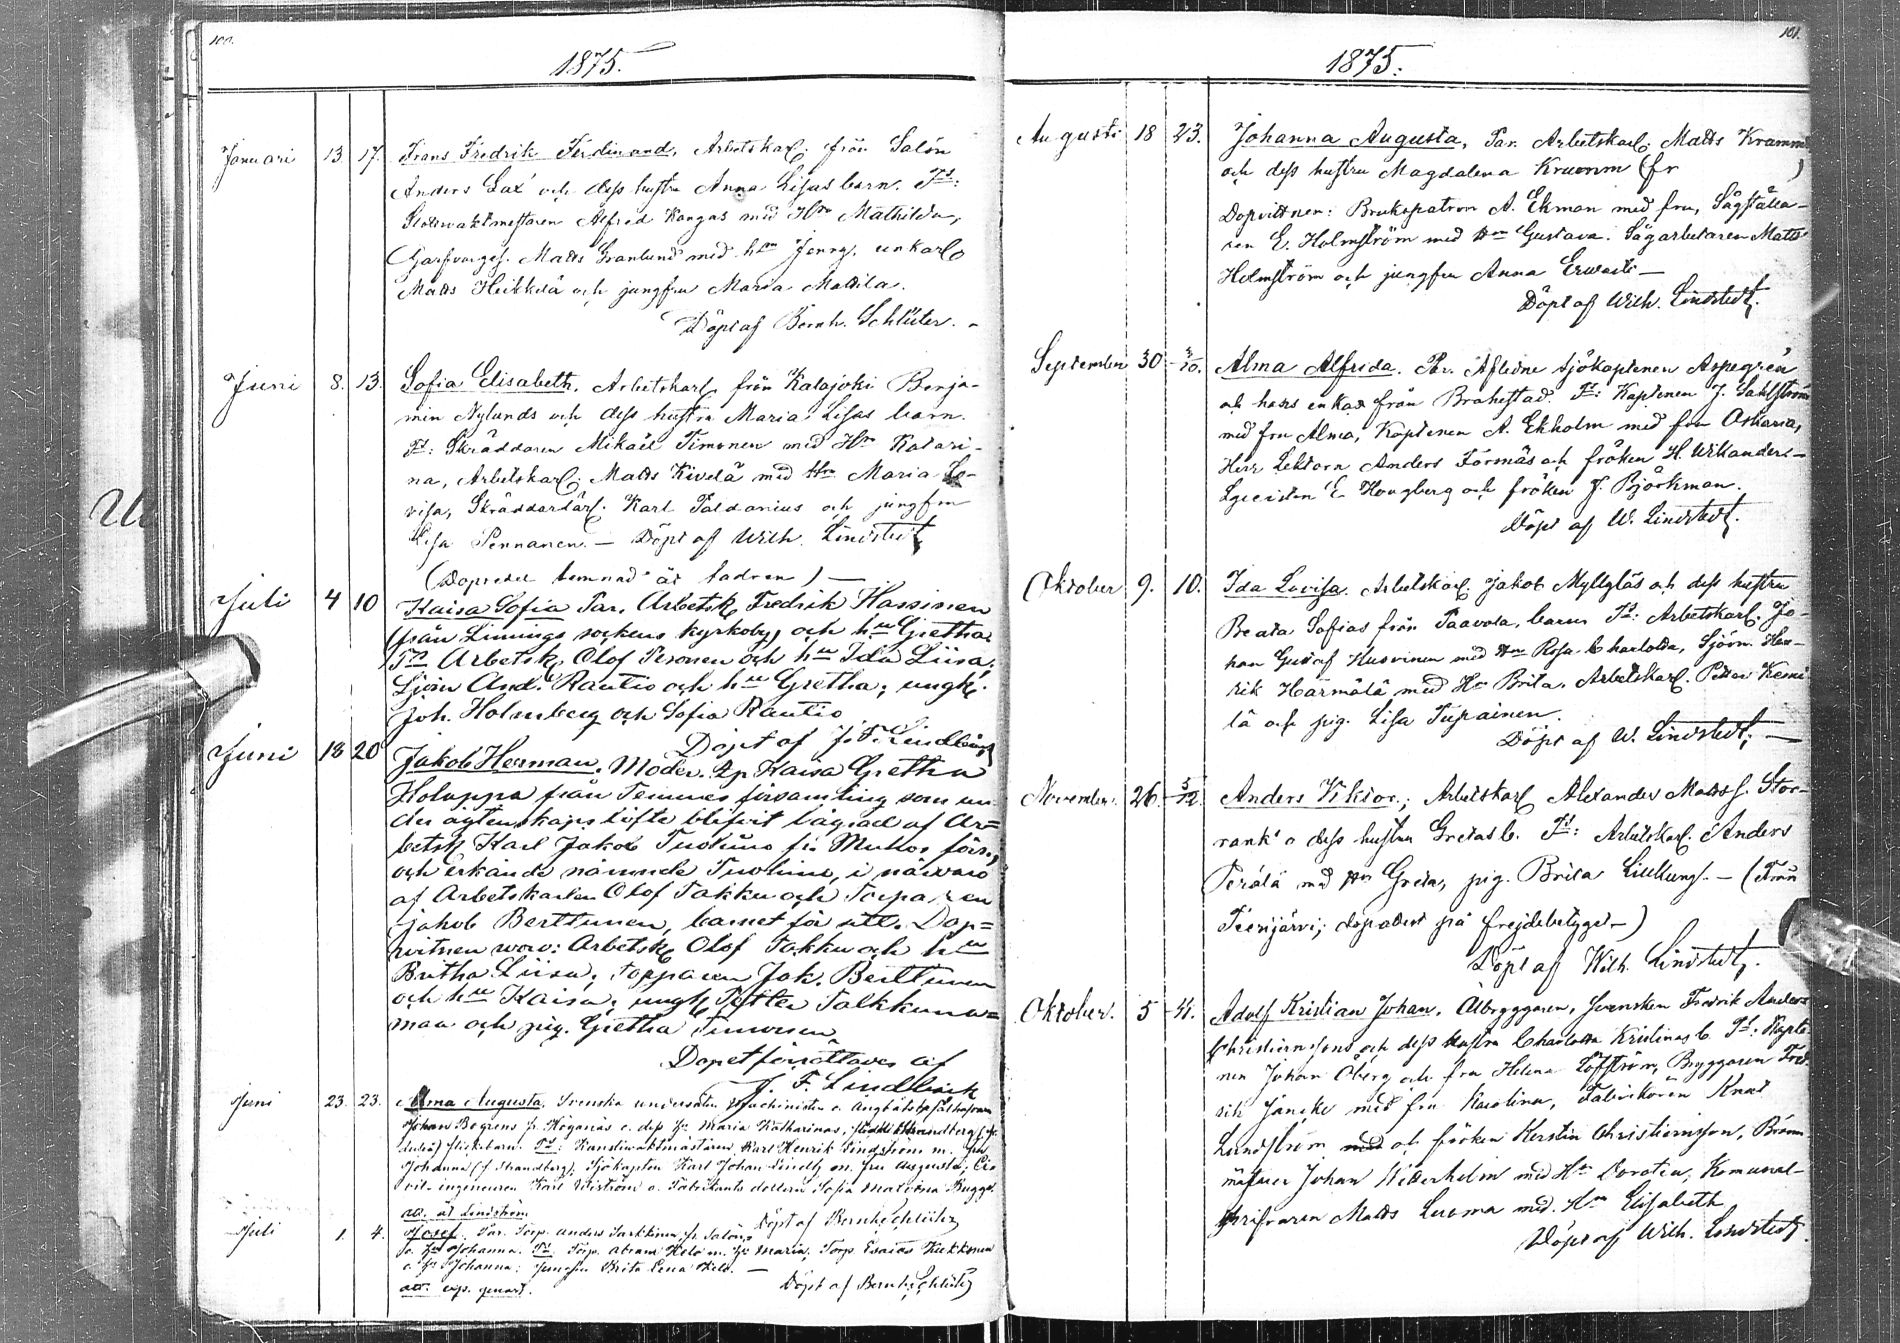 100.
1875.
Januari 13. 17. Frans Fredrik Ferdinand, Arbetskarl. från Salon
Anders Lax' och dess hustru Anna Lisas barn. Ts:
Slottsvaktmestaren Alfred Kangas med Hru Mathilda,
Garfvareges. Matts Granlund med hru Jenny, unkarl
Matts Heikkilä och jungfru Maria Mattila.
Döpt af Bernh. Schlüter.
Juni 8. 13. Sofia Elisabeth, Arbetskarl från Kalajoki Benja-
min Nylunds och dess hustru Maria Lisas barn.
Ts: Skräddaren Mikael Timonen med Hru Katari-
na, Arbetskarl. Matts Kivelä med Hru Maria Lo-
visa, Skräddarlärl. Karl Paldanius och jungfru
Lisa Pennanen. — Döpt af Wilh. Lindstedt
(Dopsedel lemnad åt fadren) —
Juli 4 10 Kaisa Sofia Par. Arbetsk. Fredrik Hassinen
(från Limingo sockens kyrkoby) och hru Gretha.
Ts Arbetsk. Olof Peronen och hru Ida Liisa;
Sjöm And. Rautio och hru Gretha; ungk.
Joh. Holmberg och Sofia Rautio
Döpt af J. F. Lindbäck
Juni 18 20 Jakob Herman. Moder. Ip Kaisa Gretha
Holappa från Temmes församling som un-
der ägtenskaps löfte blifvit lägrad af Ar=
betsk Karl Jakob Tuolimo fr. Muhos förs.,
och erkände nämnde Tuolimo, i närvaro
af Arbetskarlen Olof Takku och Torparen
Jakob Berttunen, barnet för sitt. Dop=
vitnen woro: Arbetsk Olof Takku och hru
Britha Liisa; torparen Jak. Berttunen
och hru Kaisa; ungk Petter Talkkuna=
maa och pig. Gretha Timonen
Dopet förrättades af
J. F. Lindbäck
Juni 23. 23. Alma Augusta. Svenska undersåten Machinisten å Ångbåten
Johan Bogrens fr. Höganäs o. dess hu Maria Katharinas, född Strandberg,
flickebarn. Ts: Kanslivaktmästaren Karl Henrik Lindström m. fru
Johanna (f. Strandberg), Sjökapten Karl Johan Lindh m. fru Augusta; Ci-
vil-ingeniuren Karl Wiström o. Fabrikants dottern Sofia Malvina Bugge
att. åt Lindström
Döpt af Bernh. Schlüter
Juli 1. 4. Josef. Par. Torp. Anders Sarkkinen fr. Salon,
o. hu Johanna. Ts. Torp. Abram Helo m. hu Maria, Torp. Esaias Kukkonen
o. hu Johanna; jungfru Brita Lena Helo. —
att. exp. genast.
Döpt af Bernh. Schlüter
101.
1875.
Augusti 18 23. Johanna Augusta, Par. Arbetskarl. Matts Kramm
och dess hustru Magdalena Kruorm (fr )
Dopvittnen: Brukspatron A. Ekman med fru, Sågställa-
ren E. Holmström med Hru Gustava. Sågarbetaren Matts
Holmström och jungfru Anna Erwasti —
Döpt af Wilh. Lindstedt.
September 30 3/10. Alma Alfrida. Par. Aflidne Sjökaptenen Aspegrén
och hans enka från Brahestad. Ts: Kaptenen J. Sahlström
med fru Alma, Kaptenen A. Ekholm med fru Oskaria,
Herr Lektorn Anders Formäs och fröken H. Wikander.—
Lyceisten E. Hougberg och fröken J. Björkman.
Döpt af W. Lindstedt.
Oktober 9. 10. Ida Lovisa. Arbetskarl. Jakob Myllyläs och dess hustru
Beata Sofias från Paavola, barn Ts: Arbetskarl. Jo-
han Gustaf Husvinen med Hru Rosa Charlotta, Sjöm. Hen-
rik Härmälä med Hru Brita. Arbetskarl. Petter Kemi-
lä och pig. Lisa Tupainen.
Döpt af W. Lindstedt. —
November. 26. 5/12. Anders Viktor.; Arbetskarl Alexander Mattss. Stor-
rank' o dess hustru Gretas b. Ts: Arbetskarl. Anders
Perälä med Hru Greta, pig. Brita Lillkung. — (Från
Teerijärvi; dopattest på frejdebetyget —)
Döpt af Wilh. Lindstedt.
Oktober. 5 4. Adolf Kristian Johan. Ölbryggaren, Svensken Fredrik Anders
Christiernssons och dess hustru Charlotta Kristinas b. Ts: Kapte-
nen Johan Öberg och fru Helena Löfström, Bryggaren Fred-
rik Jancke med fru Karolina, Fabrikören Knut
Lundström med och fröken Kerstin Christiernsson, Bränn-
mästaren Johan Wetterholm med Hru Dorotea, Komunal-
skrifvaren Matts Luoma med. Hru Elisabeth
Döpt af Wilh. Lindstedt.